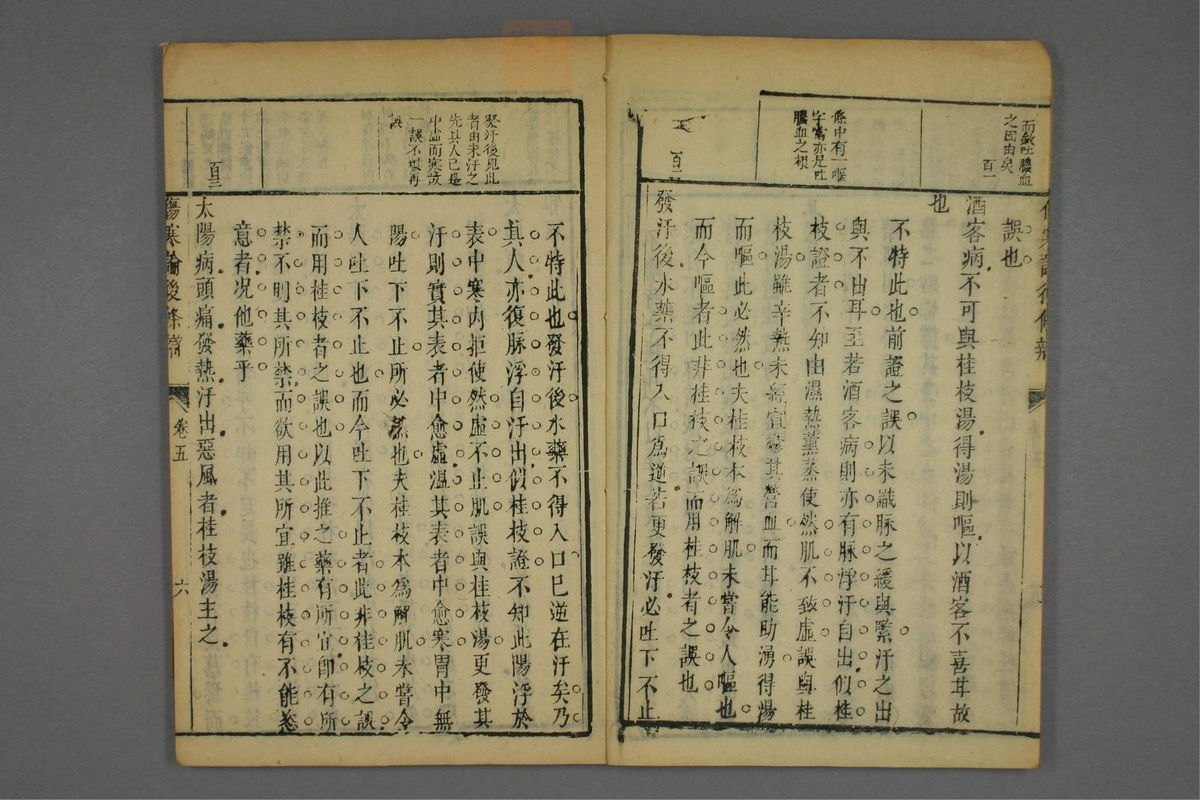 而欬吐膿血
之因由矣
百一
條中有一嘔
字當亦是吐
膿血之根
百二
誤也
酒客病不可與桂枝湯得湯則嘔以酒客不喜甘故
也
不特此也前證之誤以未識脉之緩與緊汗之出
與不出耳至若酒客病則亦有脉浮汗自出似桂
枝證者不知由濕熱薰蒸使然肌不致虛誤與桂
枝湯雖辛熱未經宣鬱其營血而甘能助湧得湯
而嘔此必然也夫桂枝本爲解肌未嘗令人嘔也
而今嘔者此非桂枝之誤而用桂枝者之誤也
發汗後水藥不得入口爲逆若更發汗必吐下不止
發汗後見此
者由未汗之
先其人已是
中虛而寒故
一誤不堪再
誤
百三
不特此也發汗後水藥不得入口已逆在汗矣乃
其人亦復脉浮自汗出似桂枝證不知此陽浮於
表中寒内拒使然虛不止肌誤與桂枝湯更發其
汗則實其表者中愈虛溫其表者中愈寒胃中無
陽吐下不止所必然也夫桂枝本爲解肌未嘗令
人吐下不止也而今吐下不止者此非桂枝之誤
而用桂枝者之誤也以此推之藥有所宜即有所
禁不明其所禁而欲用其所宜雖桂枝有不能恣
意者况他藥乎
太陽病頭痛發熱汗出惡風者桂枝湯主之
傷寒論後條辨 卷五 六